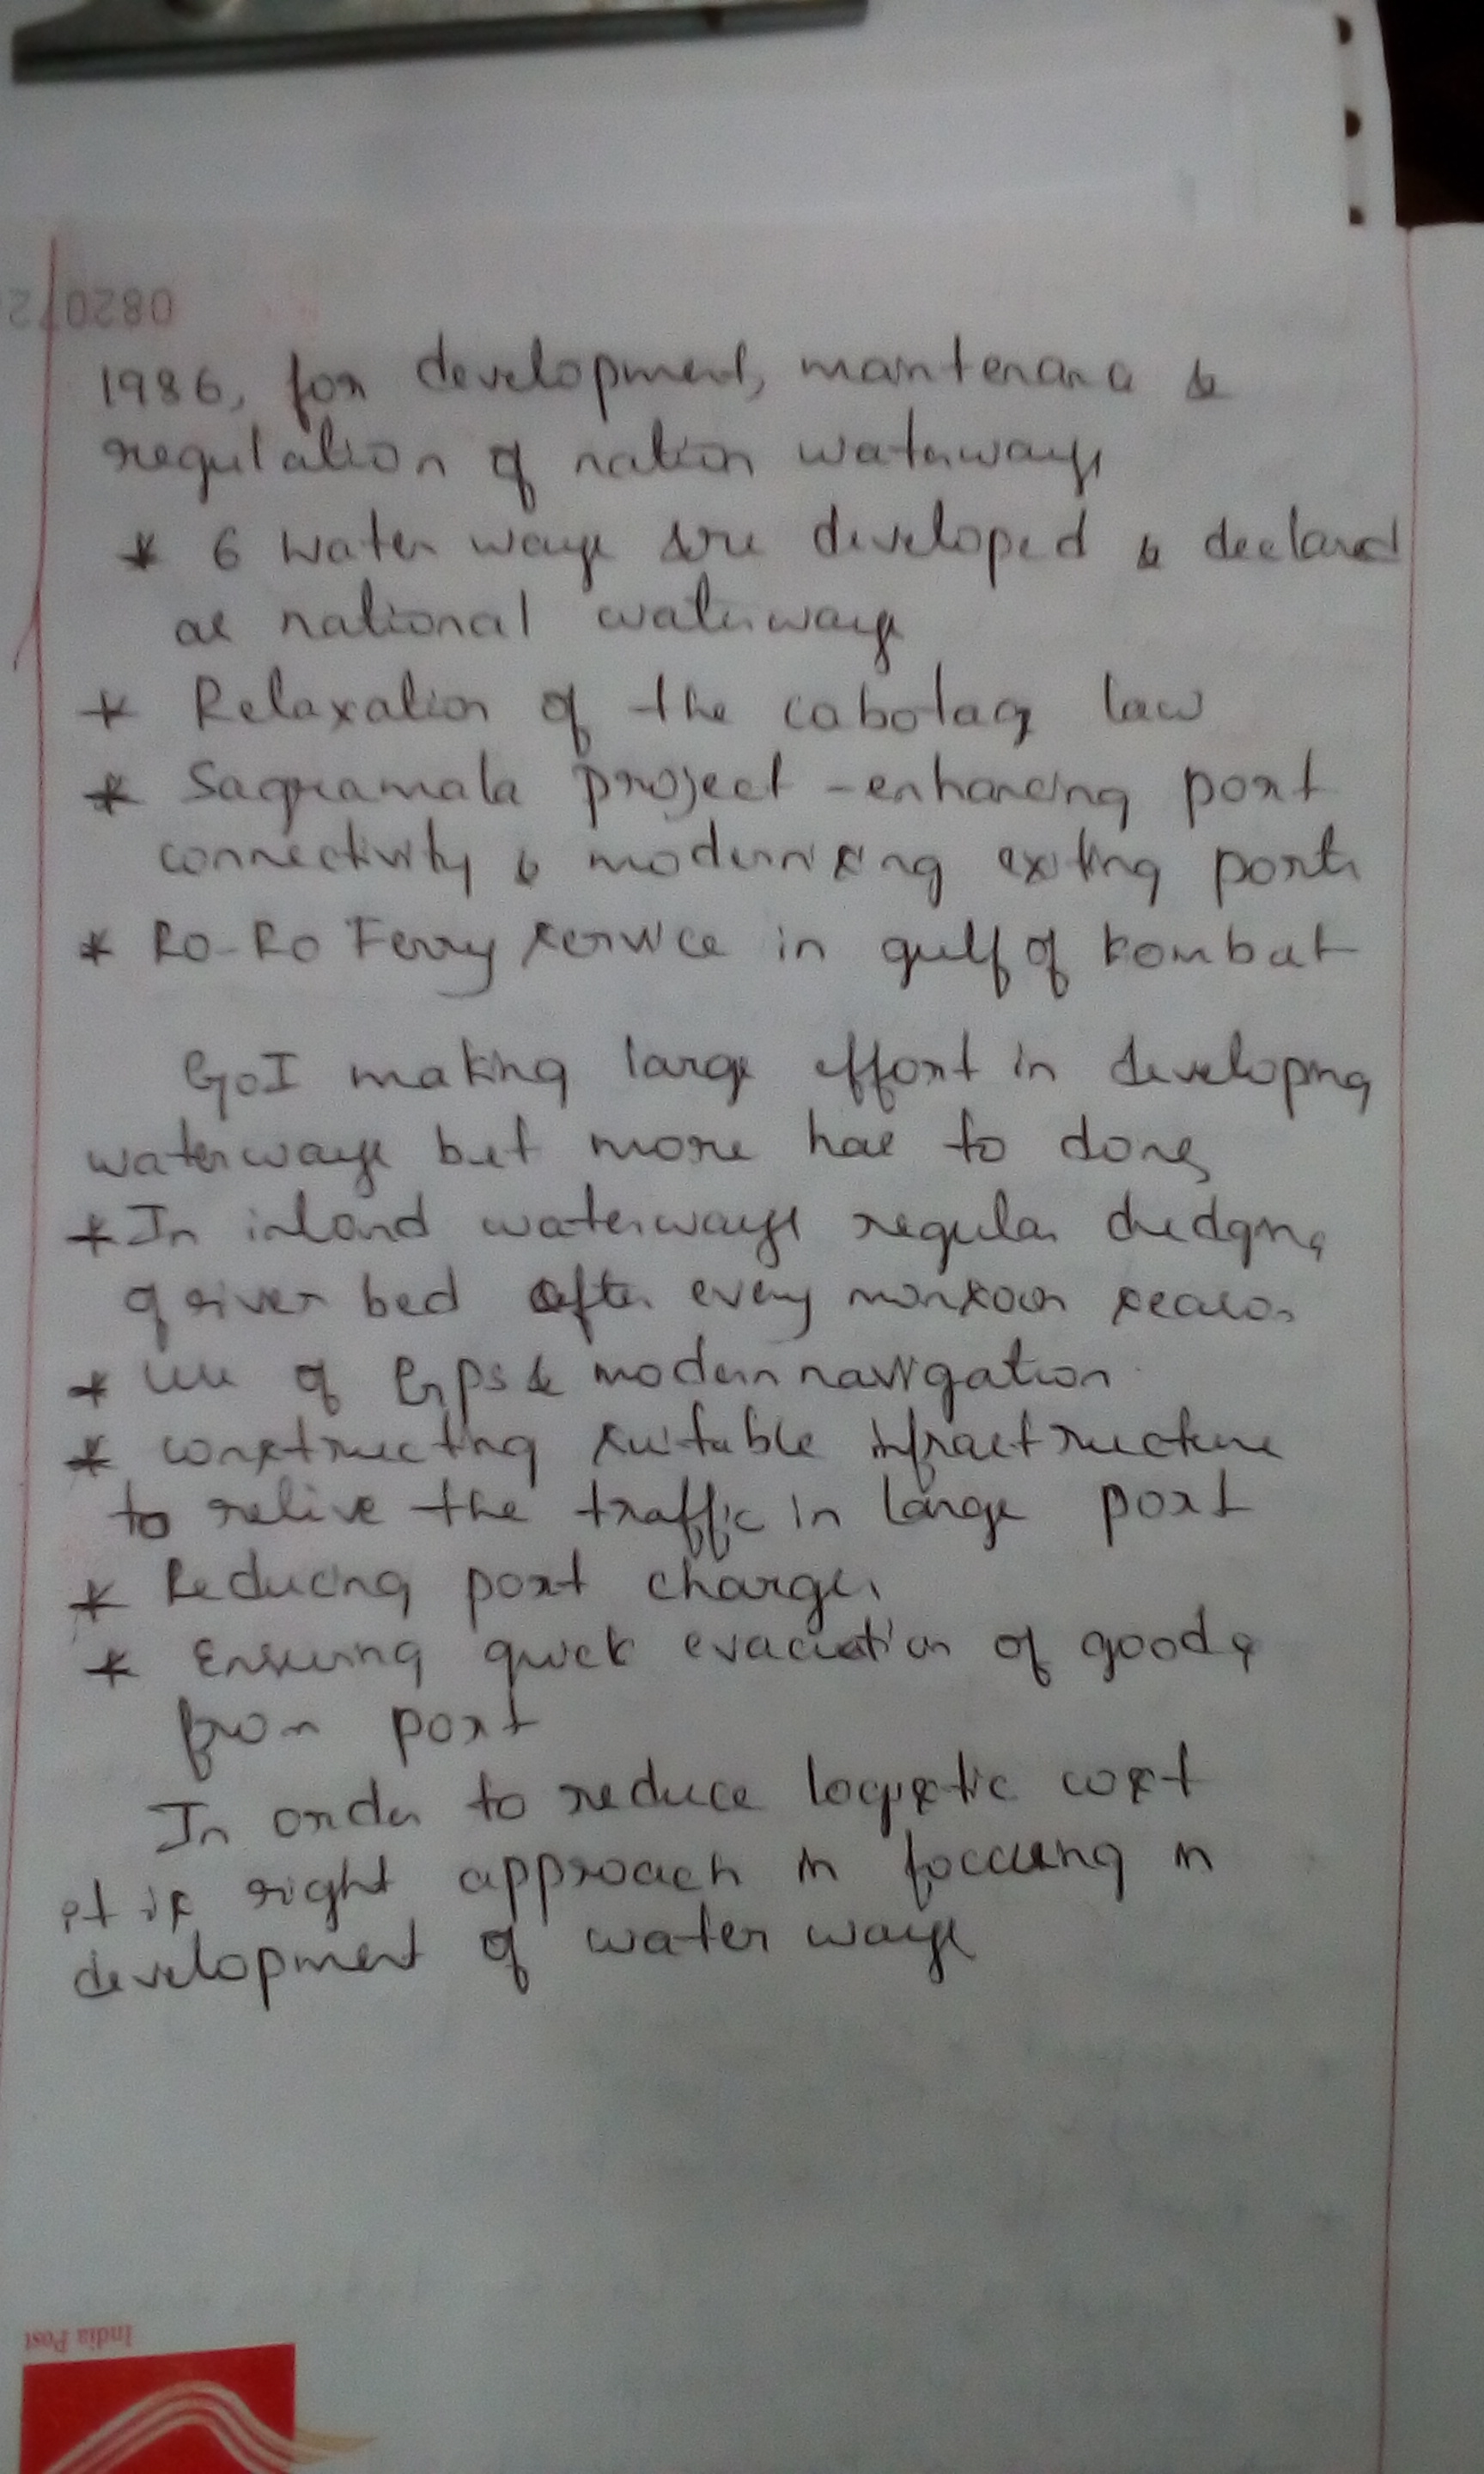 0820/2
1986, for development, maintenana &
regulation of nation waterways
* 6 water ways are developed & declared
as national waterways
* Relaxation of the cabotag law
* Sagramala project - enhancing port
connectivity & modernising exiting ports
* Ro-Ro Ferry service in gulf of kombat
GoI making large effort in developing
waterways but more has to done,
* In inland waterways regular dredging
of river bed after every monsoon season
* use of GPS & modern navigation
* constructing suitable infrastructure
to relive the traffic in large port
* Reducing port charges
* Ensuring quick evacuation of goods
from port
In order to reduce logistic cost
it is right approach in focusing in
development of water ways
India Post